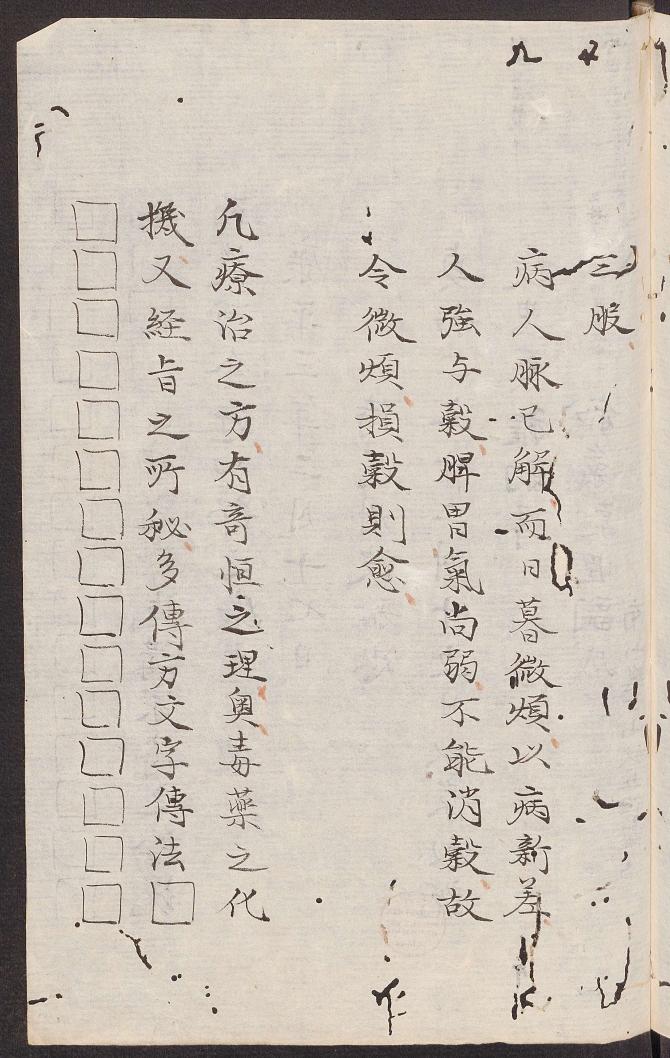 三服
病人脉已解而日暮微煩以病新差
人強与穀脾胃氣尚弱不能消穀故
令微煩損穀則愈
凡療治之方有奇恒之理奥毒薬之化
機又経旨之所秘多傳方文字傳法□
□□□□□□□□□□□□□□□